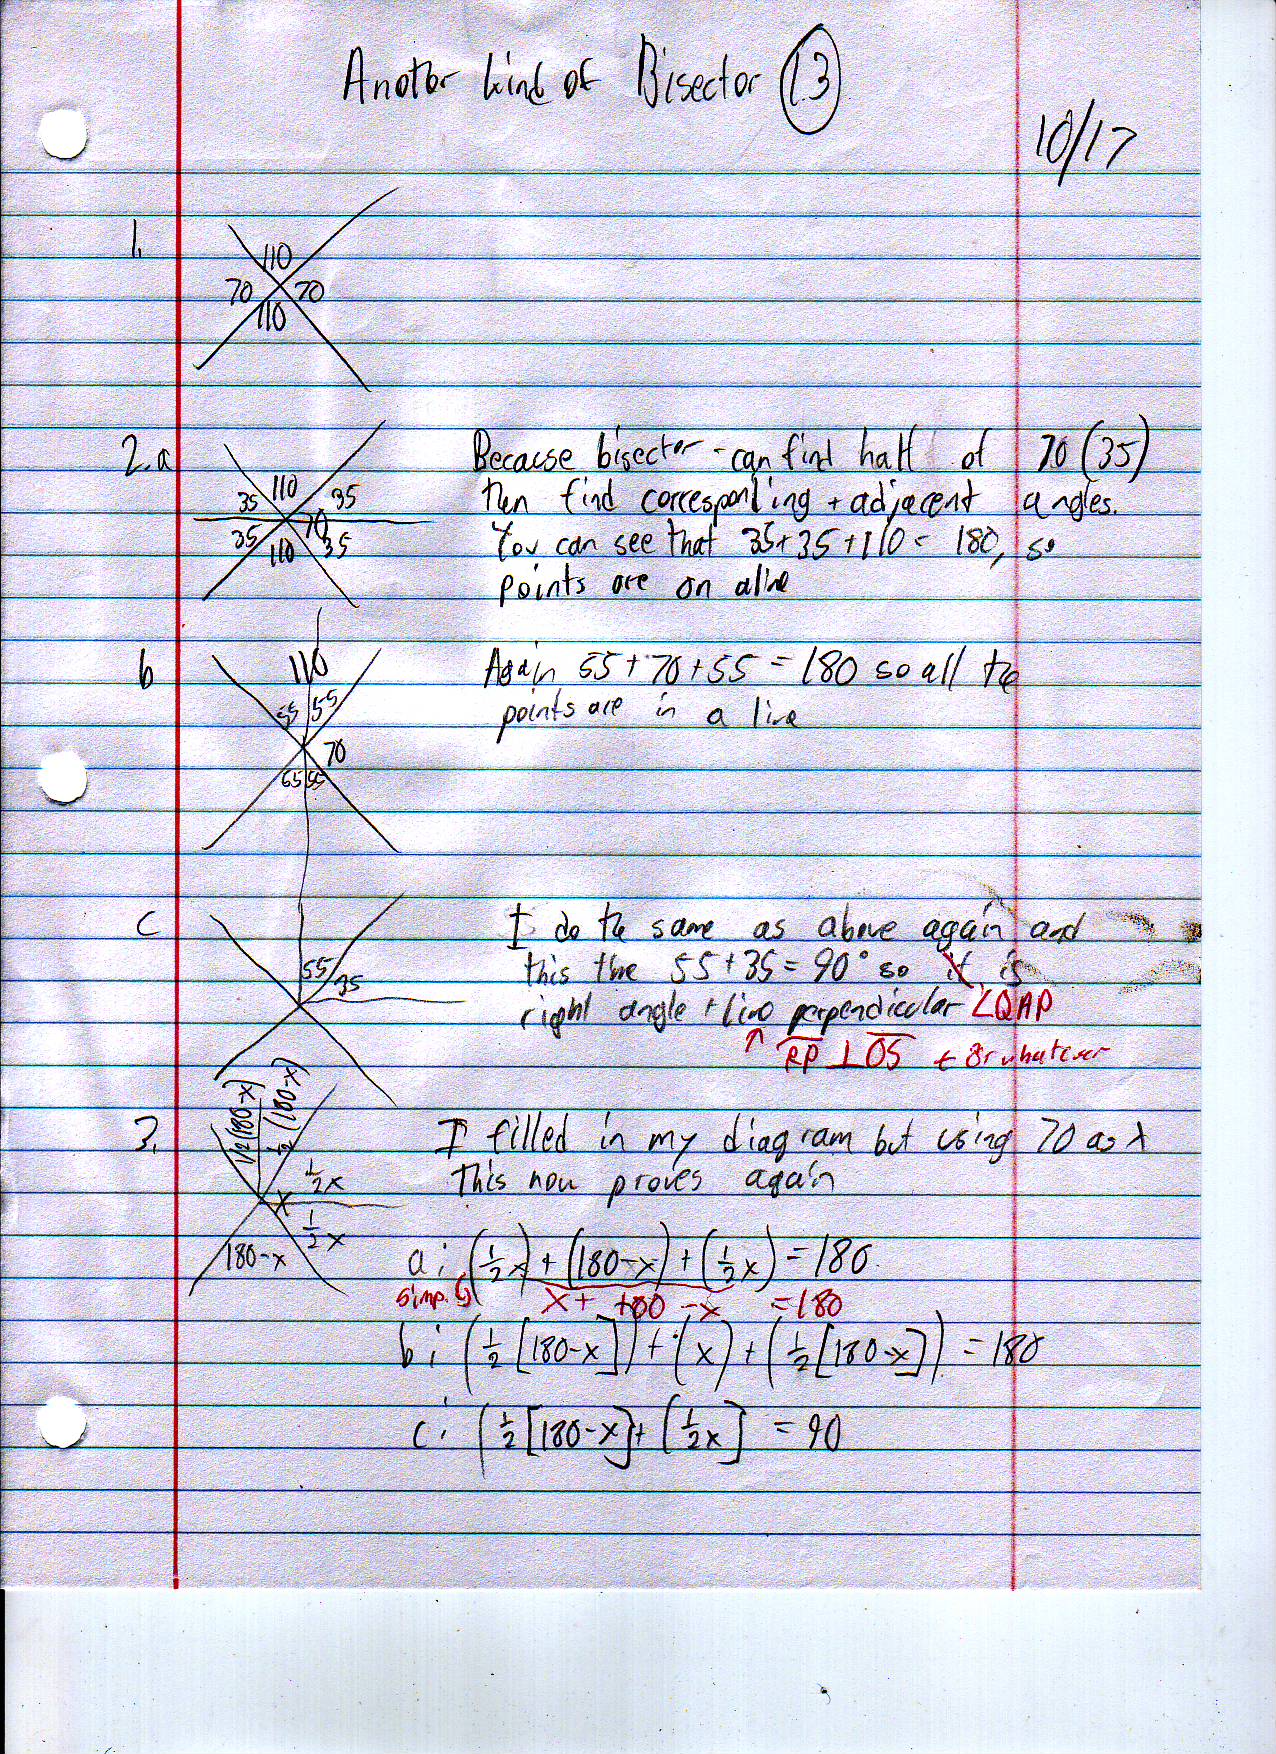 Another kind of Bisector 13
10/17
1.
110
70 70
110
2.a
110
35 35
70
35 35
110
Because bisector - can find half of 70 (35)
then find corresponding + adjacent angles.
You can see that 35+35+110 = 180, so
points are on a line
b
110
55 55
70
55 55
Again 55+70+55 = 180 so all the
points are in a line
c
55
35
I do the same as above again and
this time 55+35=90° so it is
right angle + line perpendicular ∠QAP
↑ RP ⊥ QS + or whatever
3.
1/2(180-x) 1/2(180-x)
1/2x
x
1/2x
180-x
I filled in my diagram but using 70 as x
This now proves again
a: (1/2x) + (180-x) + (1/2x) = 180
simp. x + 180 - x = 180
b: (1/2[180-x]) + (x) + (1/2[180-x]) = 180
c: (1/2[180-x]+(1/2x] = 90